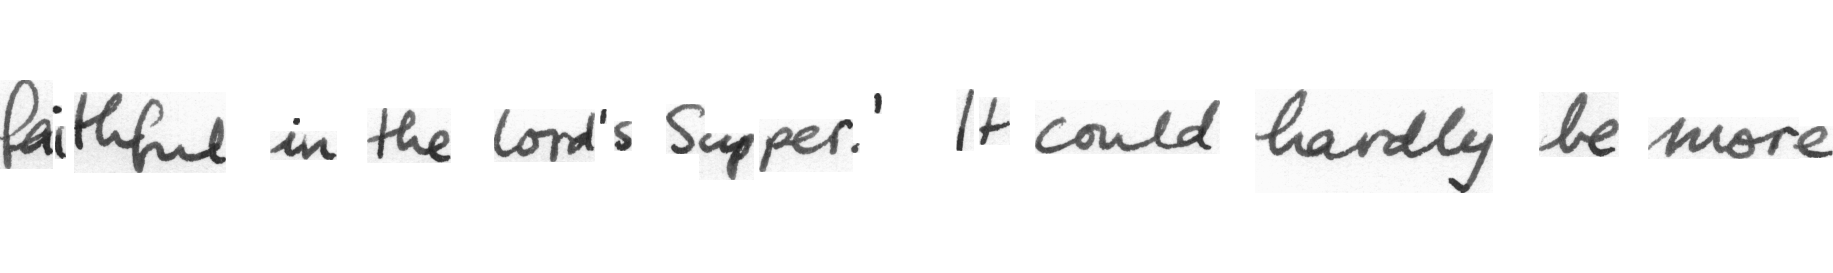 faithful in the Lord's Supper.' It could hardly be more